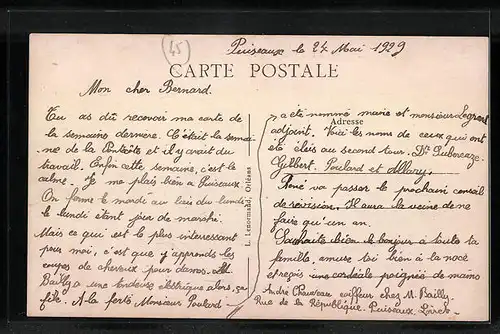 45
Puiseaux le 24 Mai 1929
CARTE POSTALE
Mon cher Bernard.
Tu as dû recevoir ma carte de
la semaine dernière. C'était la semai-
ne de la Pentecôte et il y avait du
travail. Enfin cette semaine, c'est le
calme. Je me plais bien à Puiseaux.
On ferme le mardi au lieu du lundi
le lundi étant jour de marché.
Mais ce qui est le plus intéressant
pour moi, c'est que j'apprends les
coupes de cheveux pour dames. M.
Bailly a une tondeuse électrique alors, ça
file. A la ferté Monsieur Poulard
L. Lenormand, Orléans
Adresse
a été nommé maire et monsieur Legrand
adjoint. Voici les noms de ceux qui ont
été élus au second tour. Dr
Gilbert. Poulard et Allary.
René va passer le prochain conseil
de révision. Il aura la veine de ne
faire qu'un an.
Souhaite bien le bonjour à toute ta
famille, amuse toi bien à la noce
et reçois une cordiale poignée de mains
André Chauveau coiffeur chez M. Bailly
Rue de la République. Puiseaux. Loiret